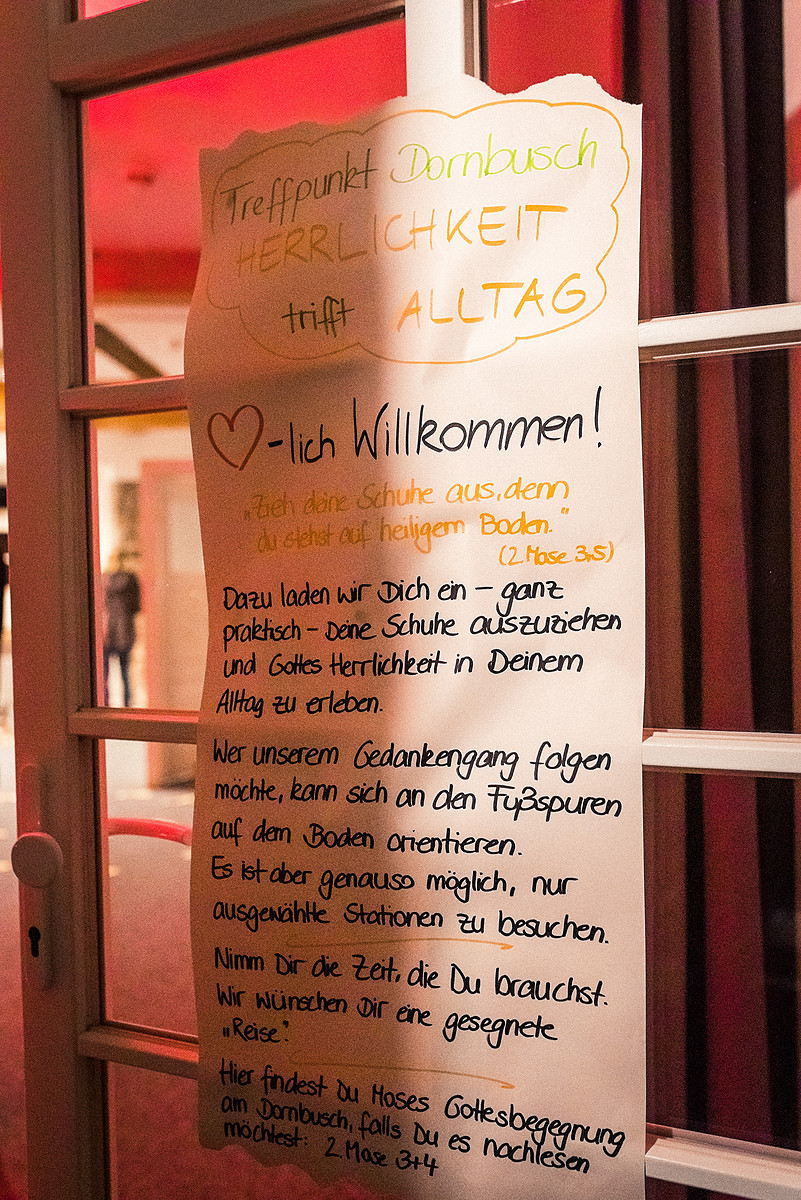 Treffpunkt Dornbusch
HERRLICHKEIT
trifft ALLTAG
♡-lich Willkommen!
„Zieh deine Schuhe aus, denn
du stehst auf heiligem Boden."
(2. Mose 3,5)
Dazu laden wir Dich ein – ganz
praktisch – Deine Schuhe auszuziehen
und Gottes Herrlichkeit in Deinem
Alltag zu erleben.
Wer unserem Gedankengang folgen
möchte, kann sich an den Fußspuren
auf dem Boden orientieren.
Es ist aber genauso möglich, nur
ausgewählte Stationen zu besuchen.
Nimm Dir die Zeit, die Du brauchst.
Wir wünschen Dir eine gesegnete
„Reise".
Hier findest Du Moses Gottesbegegnung
am Dornbusch, falls Du es nachlesen
möchtest: 2. Mose 3+4